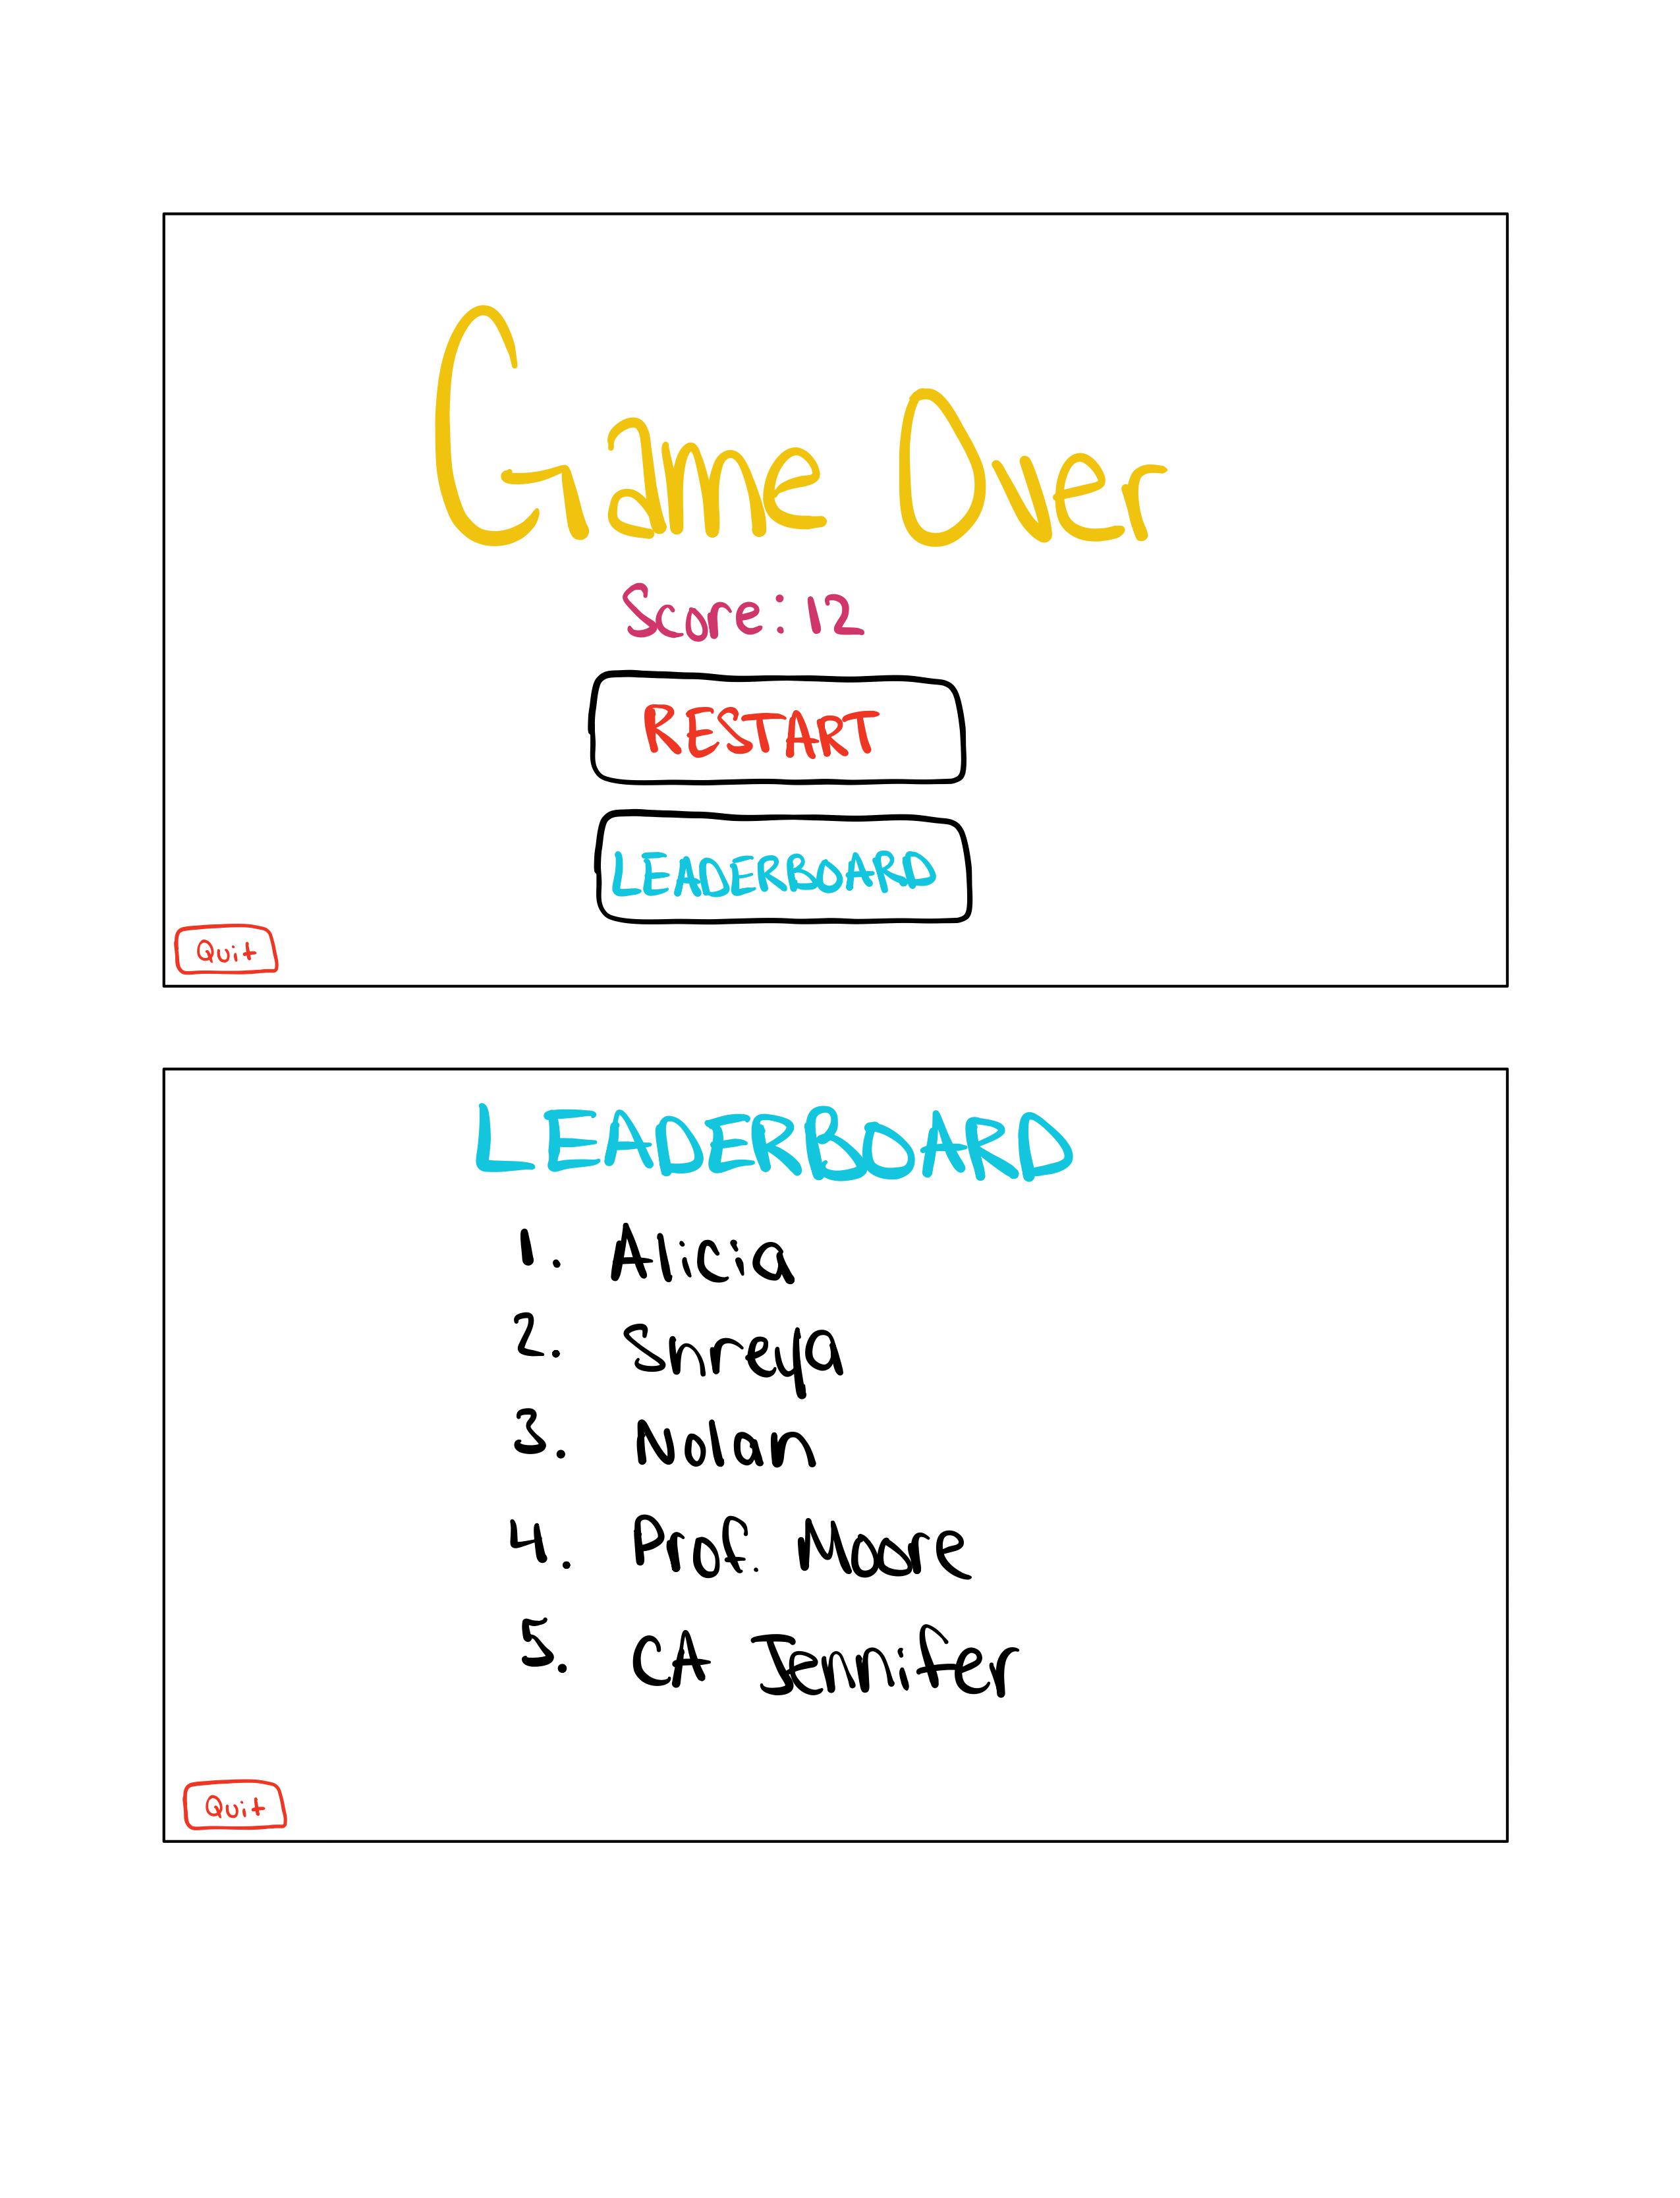 Game Over
Score: 12
RESTART
LEADERBOARD
Quit
LEADERBOARD
1. Alicia
2. Shreya
3. Nolan
4. Prof. Moore
5. CA Jennifer
Quit